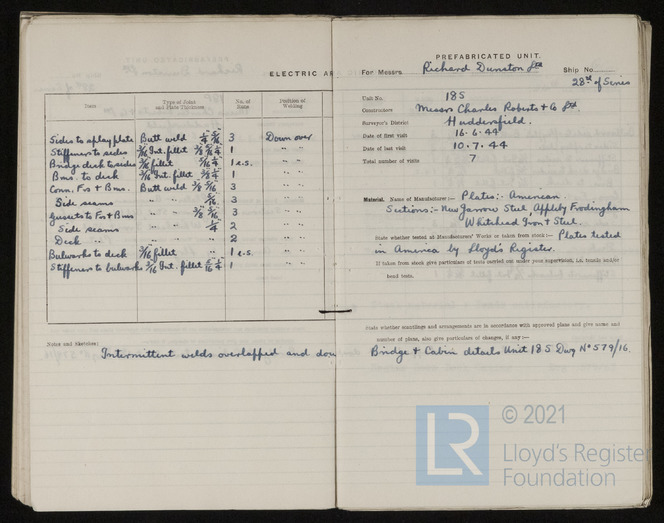 ELECTRIC AR
Item Type of Joint and Plate Thickness No. of Runs Position of Welding
Sides to splay plate Butt weld 1/4" 5/16" 3 Down over
Stiffeners to sides 3/16 Int. fillet 3/8 5/16 1/4 1 " "
Bridge deck to sides 3/16 fillet 5/16 1/4 1 e.s. " "
Bms. to deck 3/16 Int. fillet 3/8 1/4 1 " "
Conn. Frs & Bms. Butt weld 3/8 5/16 3 " "
Side seams " " 5/16 3 " "
Gussets to Frs & Bms " " 3/8 5/16 3 " "
Side seams " " 1/4 2 " "
Deck " " " 2 " "
Bulworks to deck 3/16 fillet 1 e.s. " "
Stiffener to bulworks 3/16 Int. fillet 5/16 1/4 1 " "
Notes and Sketches:
Intermittent welds overlapped and dou
PREFABRICATED UNIT.
For Messrs. Richard Dunston Ltd Ship No.
28th of Series
Unit No. 18S
Constructors Messrs Charles Roberts & Co Ltd.
Surveyor's District Huddersfield.
Date of first visit 16.6.44
Date of last visit 10.7.44
Total number of visits 7
Material. Name of Manufacturer:— Plates:- American
Sections:- New Jarrow Steel, Appleby Frodingham
Whitehead Iron & Steel.
State whether tested at Manufacturers' Works or taken from stock:— Plates tested
in America by Lloyd's Register.
If taken from stock give particulars of tests carried out under your supervision, i.e. tensile and/or
bend tests.
State whether scantlings and arrangements are in accordance with approved plans and give name and
number of plans, also give particulars of changes, if any:—
Bridge & Cabin details Unit 18S Dwg No 579/16.
LR
© 2021
Lloyd's Register
Foundation